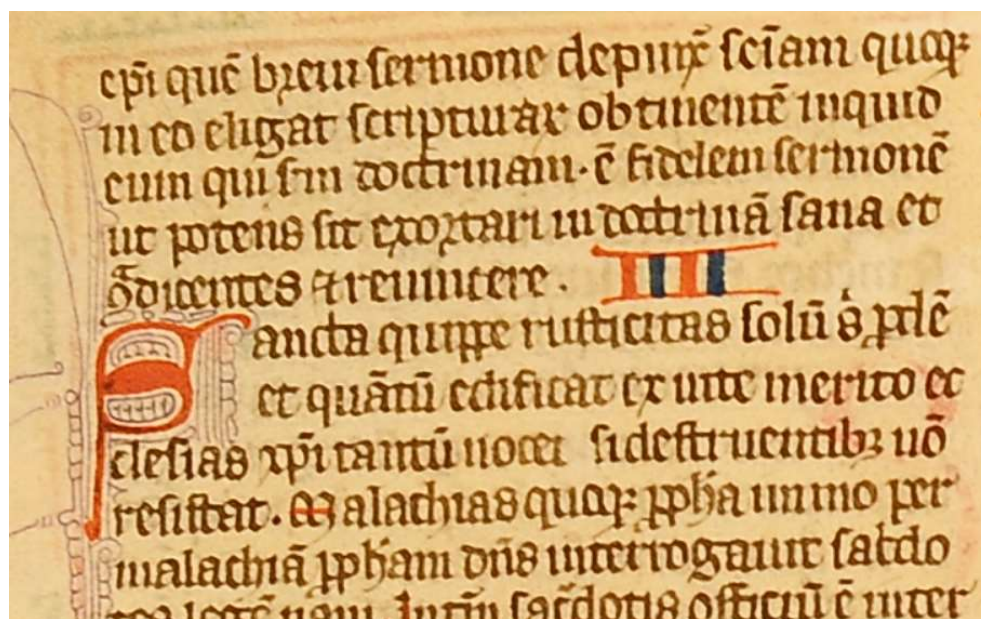 epi quē breui sermone depinx̄ sciam quoq;
in eo eligat scripturar obtinentē inquid
eum qui s̄m doctrinam. ē fidelem sermonē
ut potens sit exortari in doctrinā sana et
9dicentes ⁊ reuincere. III
Sancta quippe rusticitas solū s' pdē
et quātū edificat ex uite merito ec
clesias xp̄i tantū nocet si destruentib; nō
resistat. Malachias quoq; ppħa immo per
malachiā ppħam dn̄s interrogauit sac̄do
tes legē